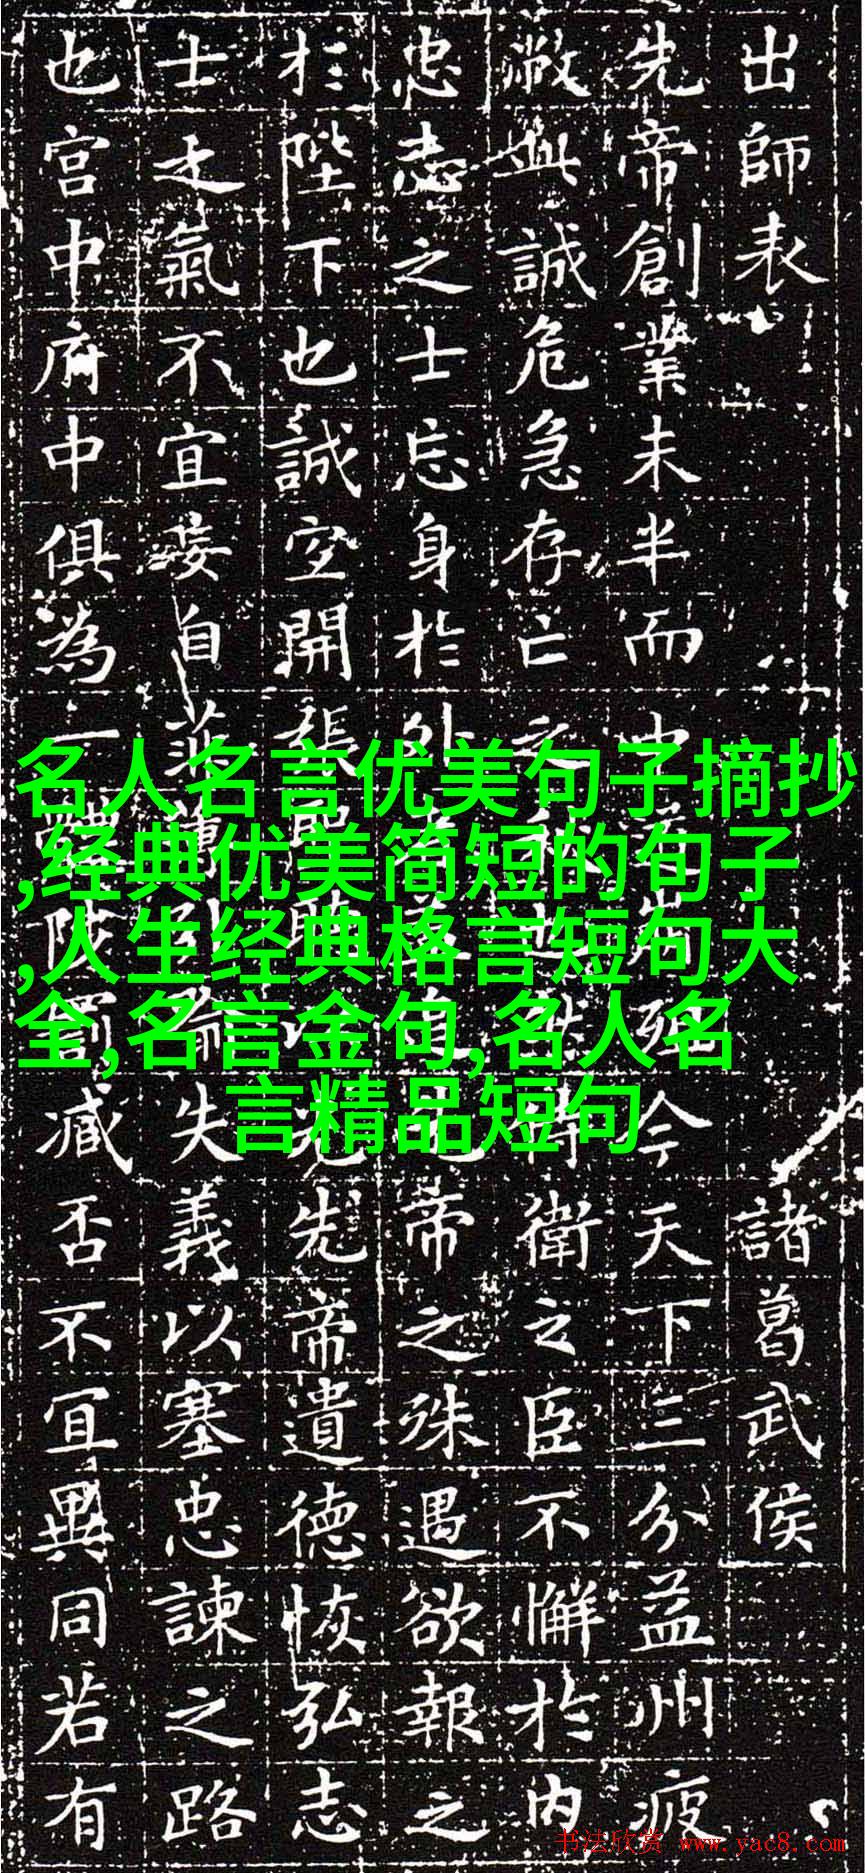 出師表 諸葛武侯
先帝創業未半而中道崩殂今天下三分益州疲
敝此誠危急存亡之秋也然侍衛之臣不懈於內
忠志之士忘身於外者蓋追先帝之殊遇欲報之
於陛下也誠宜開張聖聽以光先帝遺德恢弘志
士之氣不宜妄自菲薄引喻失義以塞忠諫之路
也宮中府中俱為一體陟罰臧否不宜異同若有
名人名言优美句子摘抄
,经典优美简短的句子
,人生经典格言短句大
全,名言金句,名人名
言精品短句
书法欣赏 www.yac8.com